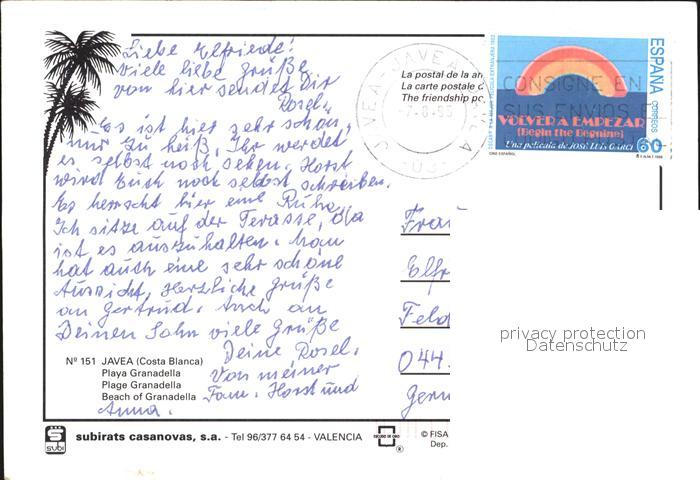 Liebe Elfriede!
Viele liebe Grüße
von hier sendet Dir
Rosel.
Es ist hier sehr schön,
nur zu heiß, Ihr werdet
es selbst noch sehen. Horst
wird Euch noch selbst schreiben.
Es herrscht hier eine Ruhe.
Ich sitze auf der Terasse, da
ist es auszuhalten. Man
hat auch eine sehr schöne
Aussicht. Herzliche Grüße
an Gertrud. Auch an
Deinen Sohn viele Grüße
Deine Rosel.
Von meiner
Fam. Horst und
Anna.
Nº 151 JAVEA (Costa Blanca)
Playa Granadella
Plage Granadella
Beach of Granadella
SUBI
subirats casanovas, s.a. - Tel 96/377 64 54 - VALENCIA
ESCUDO DE ORO
®
© FISA
Dep.
La postal de la am
La carte postale d
The friendship po
JAVEA - JAVEA
CONSIGNE EN
SUS ENVIOS E
ESPAÑA
CORREOS
VOLVER A EMPEZAR
(Begin the Beguine)
Una película de JOSÉ LUIS GARCI
60
Frau
Elfr
Feld
044
Germ
privacy protection
Datenschutz